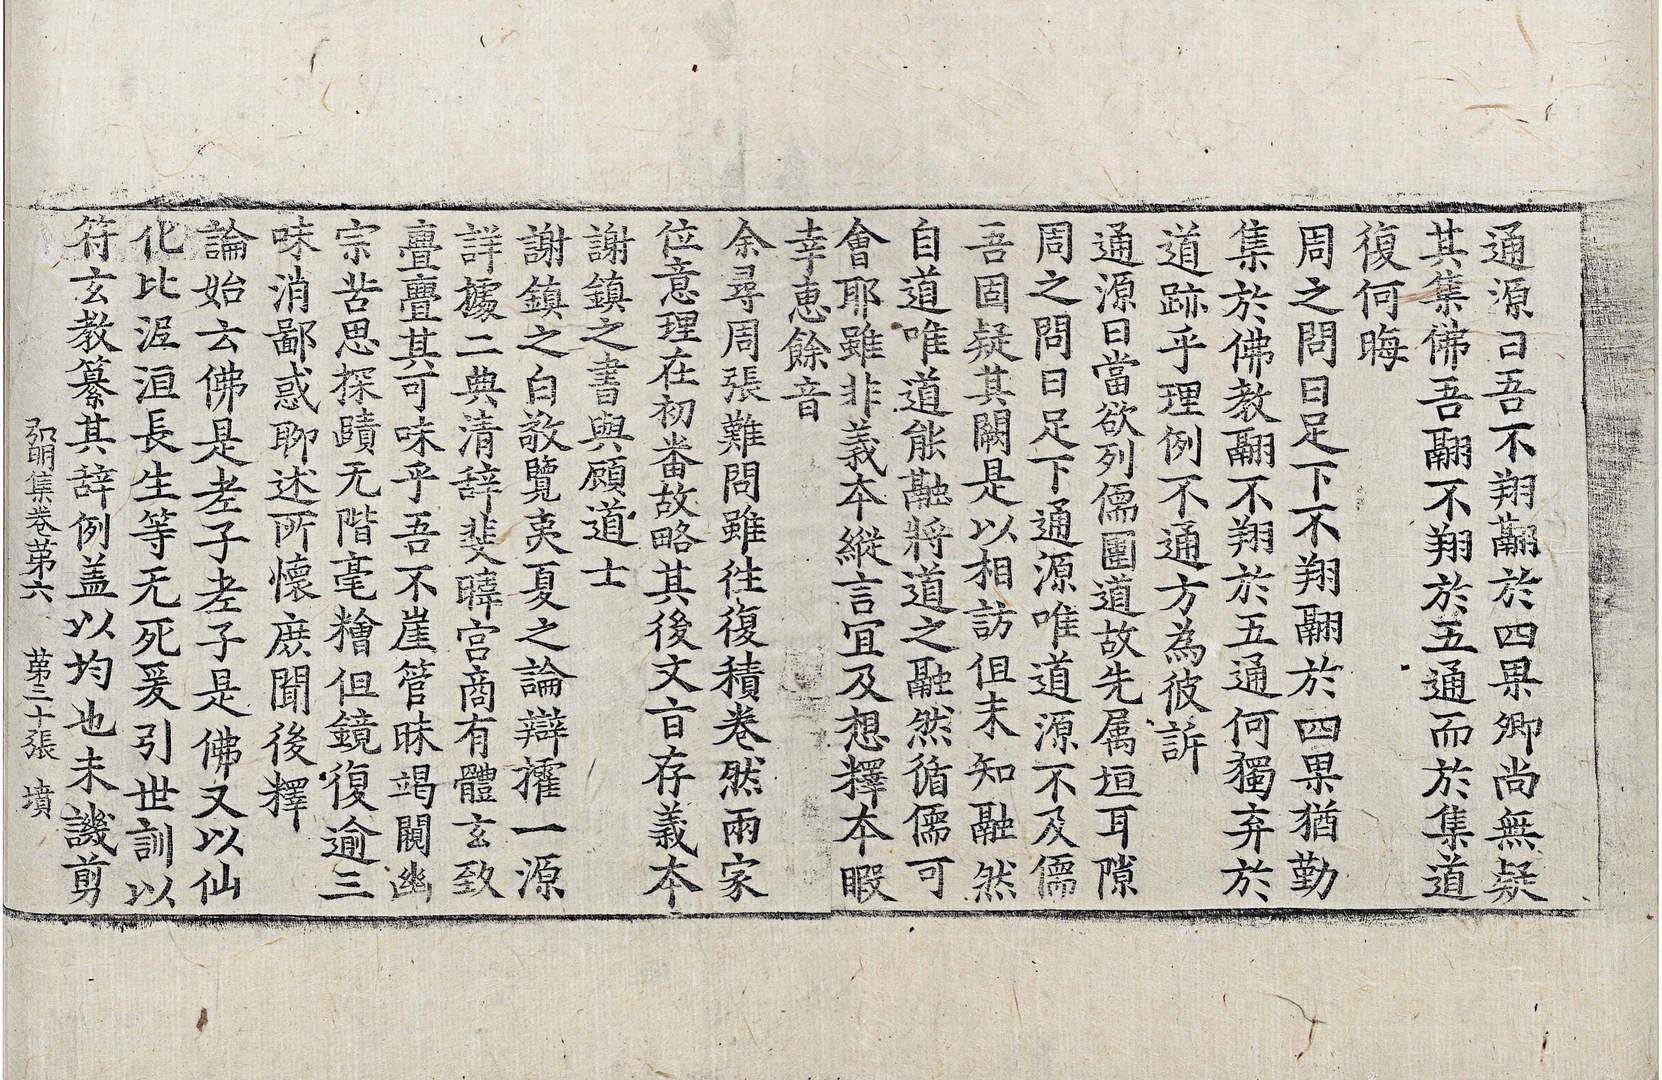 通源曰吾不翔翮於四果卿尚無疑
其集佛吾翮不翔於五通而於集道
復何晦
周之問曰足下不翔翮於四果猶勤
集於佛教翮不翔於五通何獨弃於
道跡乎理例不通方為彼訴
通源曰當欲列儒圍道故先属垣耳隙
周之問曰足下通源唯道源不及儒
吾固疑其闕是以相訪但未知融然
自道唯道能融將道之融然循儒可
會耶雖非義本縱言宜及想釋本暇
幸恵餘音
余尋周張難問雖往復積卷然兩家
位意理在初番故略其後文㫖存義本
謝鎮之書與顧道士
謝鎮之白敬覽夷夏之論辯搉一源
詳據二典清辞斐暐宫商有體玄致
亹亹其可味乎吾不崖管昧竭闚幽
宗苦思探賾无階毫䊭但鏡復逾三
味消鄙惑聊述所懷庶聞後釋
論始云佛是老子老子是佛又以仙
化比泥洹長生等无死爰引世訓以
符玄教纂其辞例盖以均也未譏剪
弘明集卷第六　第三十張　墳